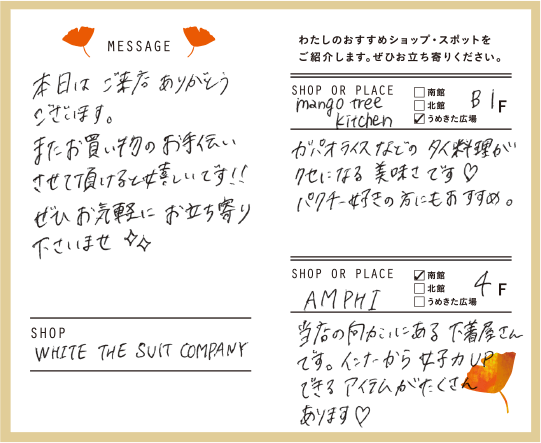 MESSAGE
本日は ご来店 ありがとう
ございます。
またお買い物の お手伝い
させて頂けると嬉しいです!!
ぜひ お気軽に お立ち寄り
下さいませ
SHOP
WHITE THE SUIT COMPANY
わたしのおすすめショップ・スポットを
ご紹介します。ぜひお立ち寄りください。
SHOP OR PLACE
mango tree
kitchen
南館
北館
うめきた広場
B1F
ガパオライスなどの タイ料理が
クセになる 美味さです♡
パクチー好きの方にもおすすめ。
SHOP OR PLACE
AMPHI
南館
北館
うめきた広場
4F
当店の向かいにある 下着屋さん
です。インナーから 女子力UP
できる アイテムがたくさん
あります♡